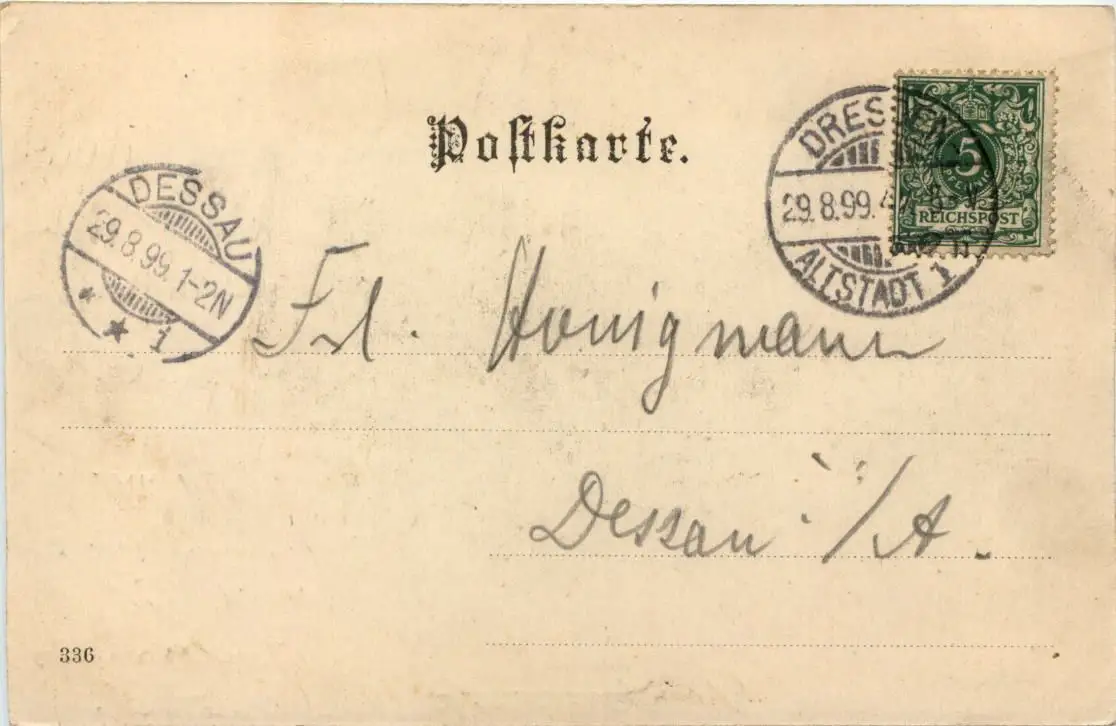 Postkarte.
DRESDEN
29.8.99.
ALTSTADT 1
5
REICHSPOST
DESSAU
29.8.99. 1-2N
1
Frl. Honigmann
Dessau i/A.
336